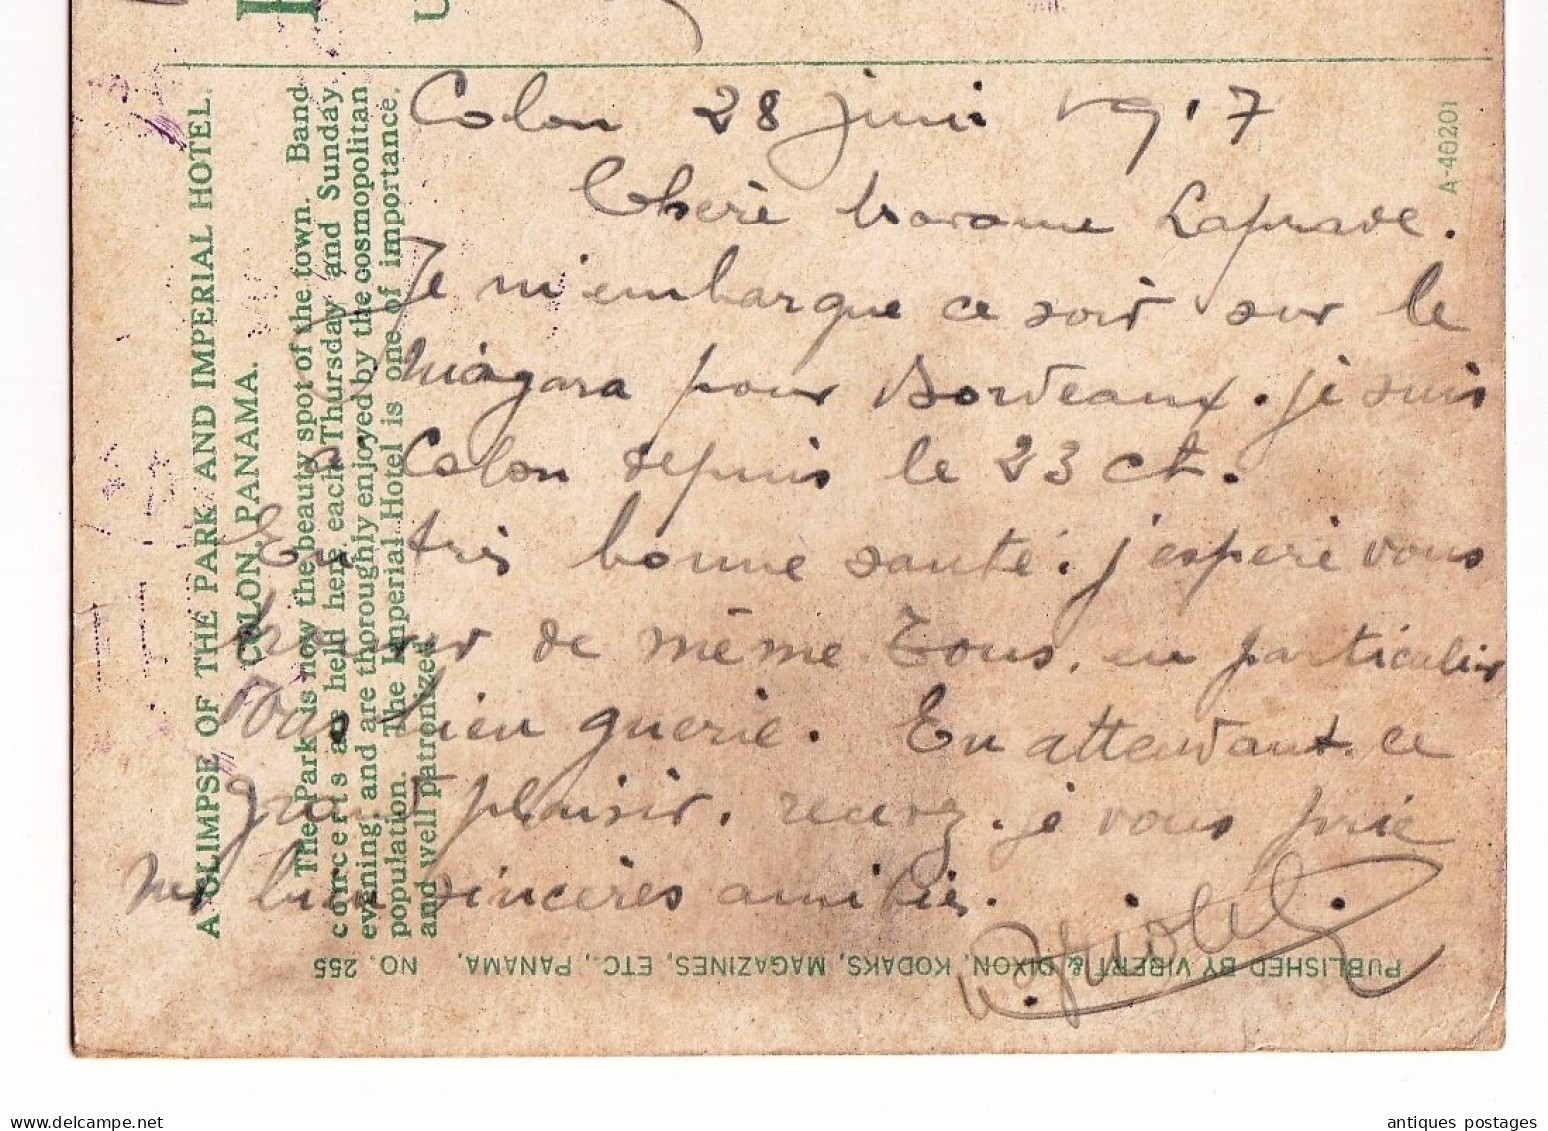 Colon 28 juin 1917
Chère Madame Laprade.
Je m'embarque ce soir sur le
Niágara pour Bordeaux. je suis
à Colon depuis le 23 ct.
En très bonne santé. j'espère vous
trouver de même Tous. en particulier
vous bien guerie. En attendant ce
grand plaisir. recevez. je vous prie
mes bien sincères amitiés.
A GLIMPSE OF THE PARK AND IMPERIAL HOTEL.
COLON, PANAMA.
The Park is now the beauty spot of the town. Band
concerts are held here each Thursday and Sunday
evening and are thoroughly enjoyed by the cosmopolitan
population. The Imperial Hotel is one of importance,
and well patronized.
A-40201
NO. 255 PUBLISHED BY VIBERT & DIXON, KODAKS, MAGAZINES, ETC., PANAMA,
delcampe.net
antiques postages